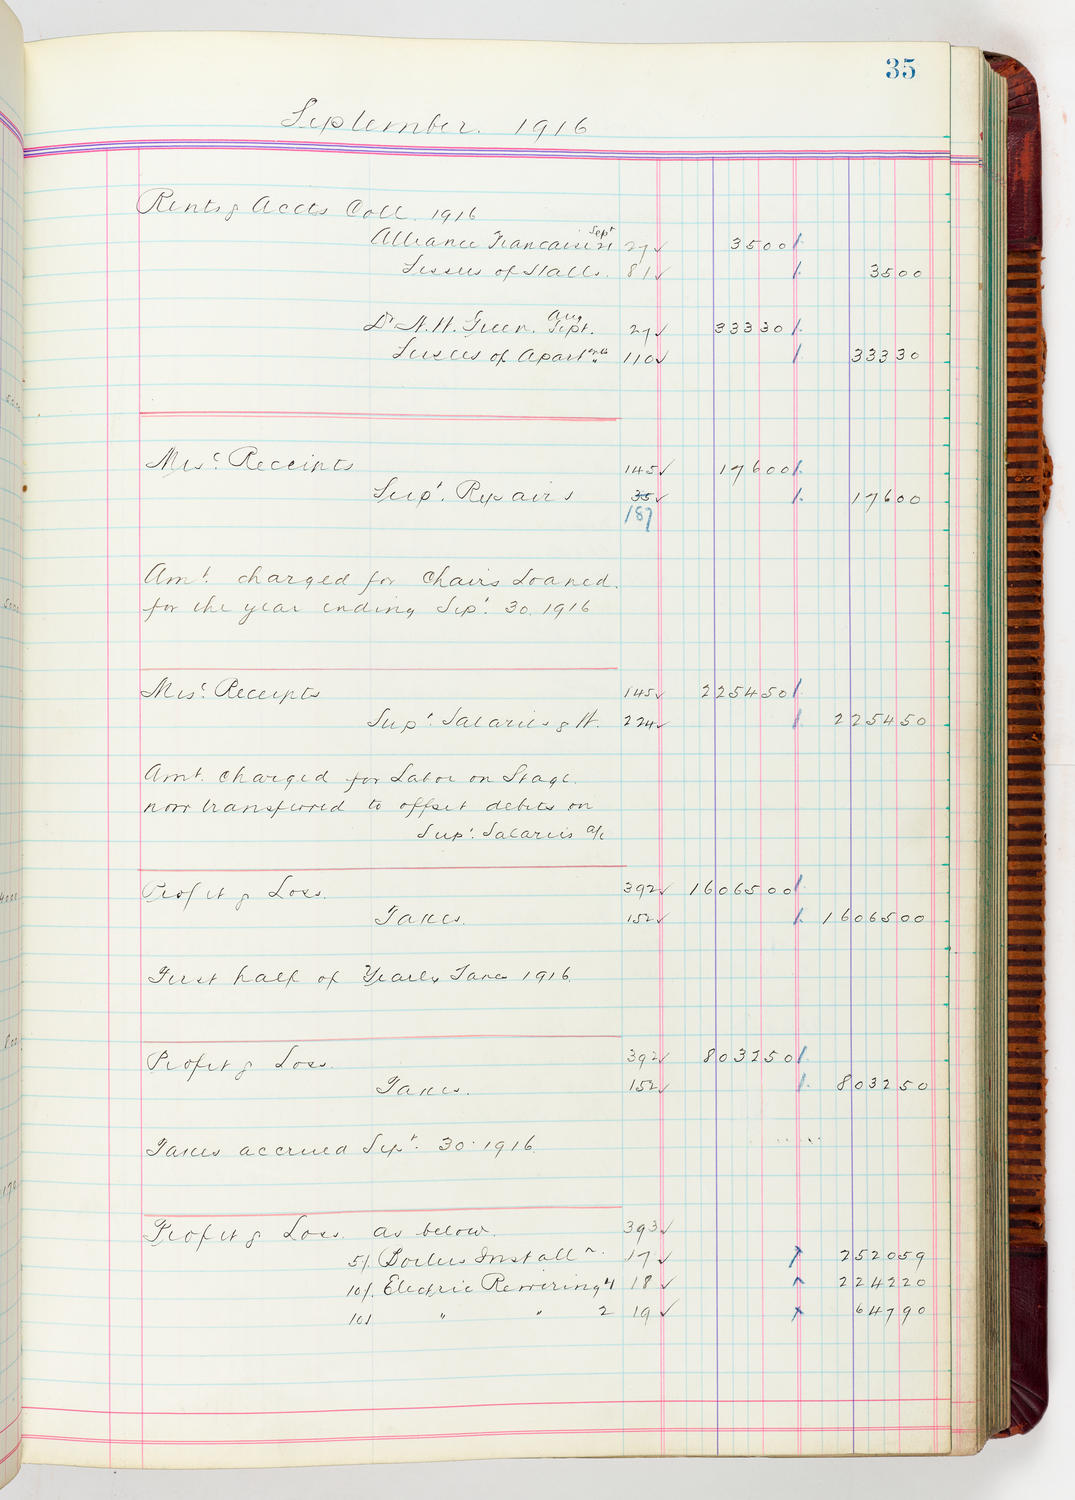 35
September. 1916
Rents & Accts Coll. 1916
Alliance Francaise Sept 21 27 ✓ 3500
Lessees of Stalls. 81 ✓ 3500
Dr A. H. Green. Aug Sept. 27 ✓ 33330
Lessees of Apartmts 110 ✓ 33330
Misc. Receipts 145 ✓ 17600
Sup. Repairs 35 ✓ 17600
187
Amt. charged for Chairs Loaned.
for the year ending Sep. 30. 1916
Misc. Receipts 145 ✓ 225450
Sup. Salaries & W. 224 ✓ 225450
Amt. charged for Labor on Stage.
now transferred to offset debits on
Sup. Salaries a/c
Profit & Loss. 392 ✓ 1606500
Taxes. 152 ✓ 1606500
First half of Yearly Taxes 1916.
Profit & Loss. 392 ✓ 803250
Taxes. 152 ✓ 803250
Taxes accrued Sept. 30. 1916.
Profit & Loss as below. 393 ✓
5% Boilers Install n. 17 ✓ 252059
10% Electric Rewiring #1 18 ✓ 224220
10% " " 2 19 ✓ 64790